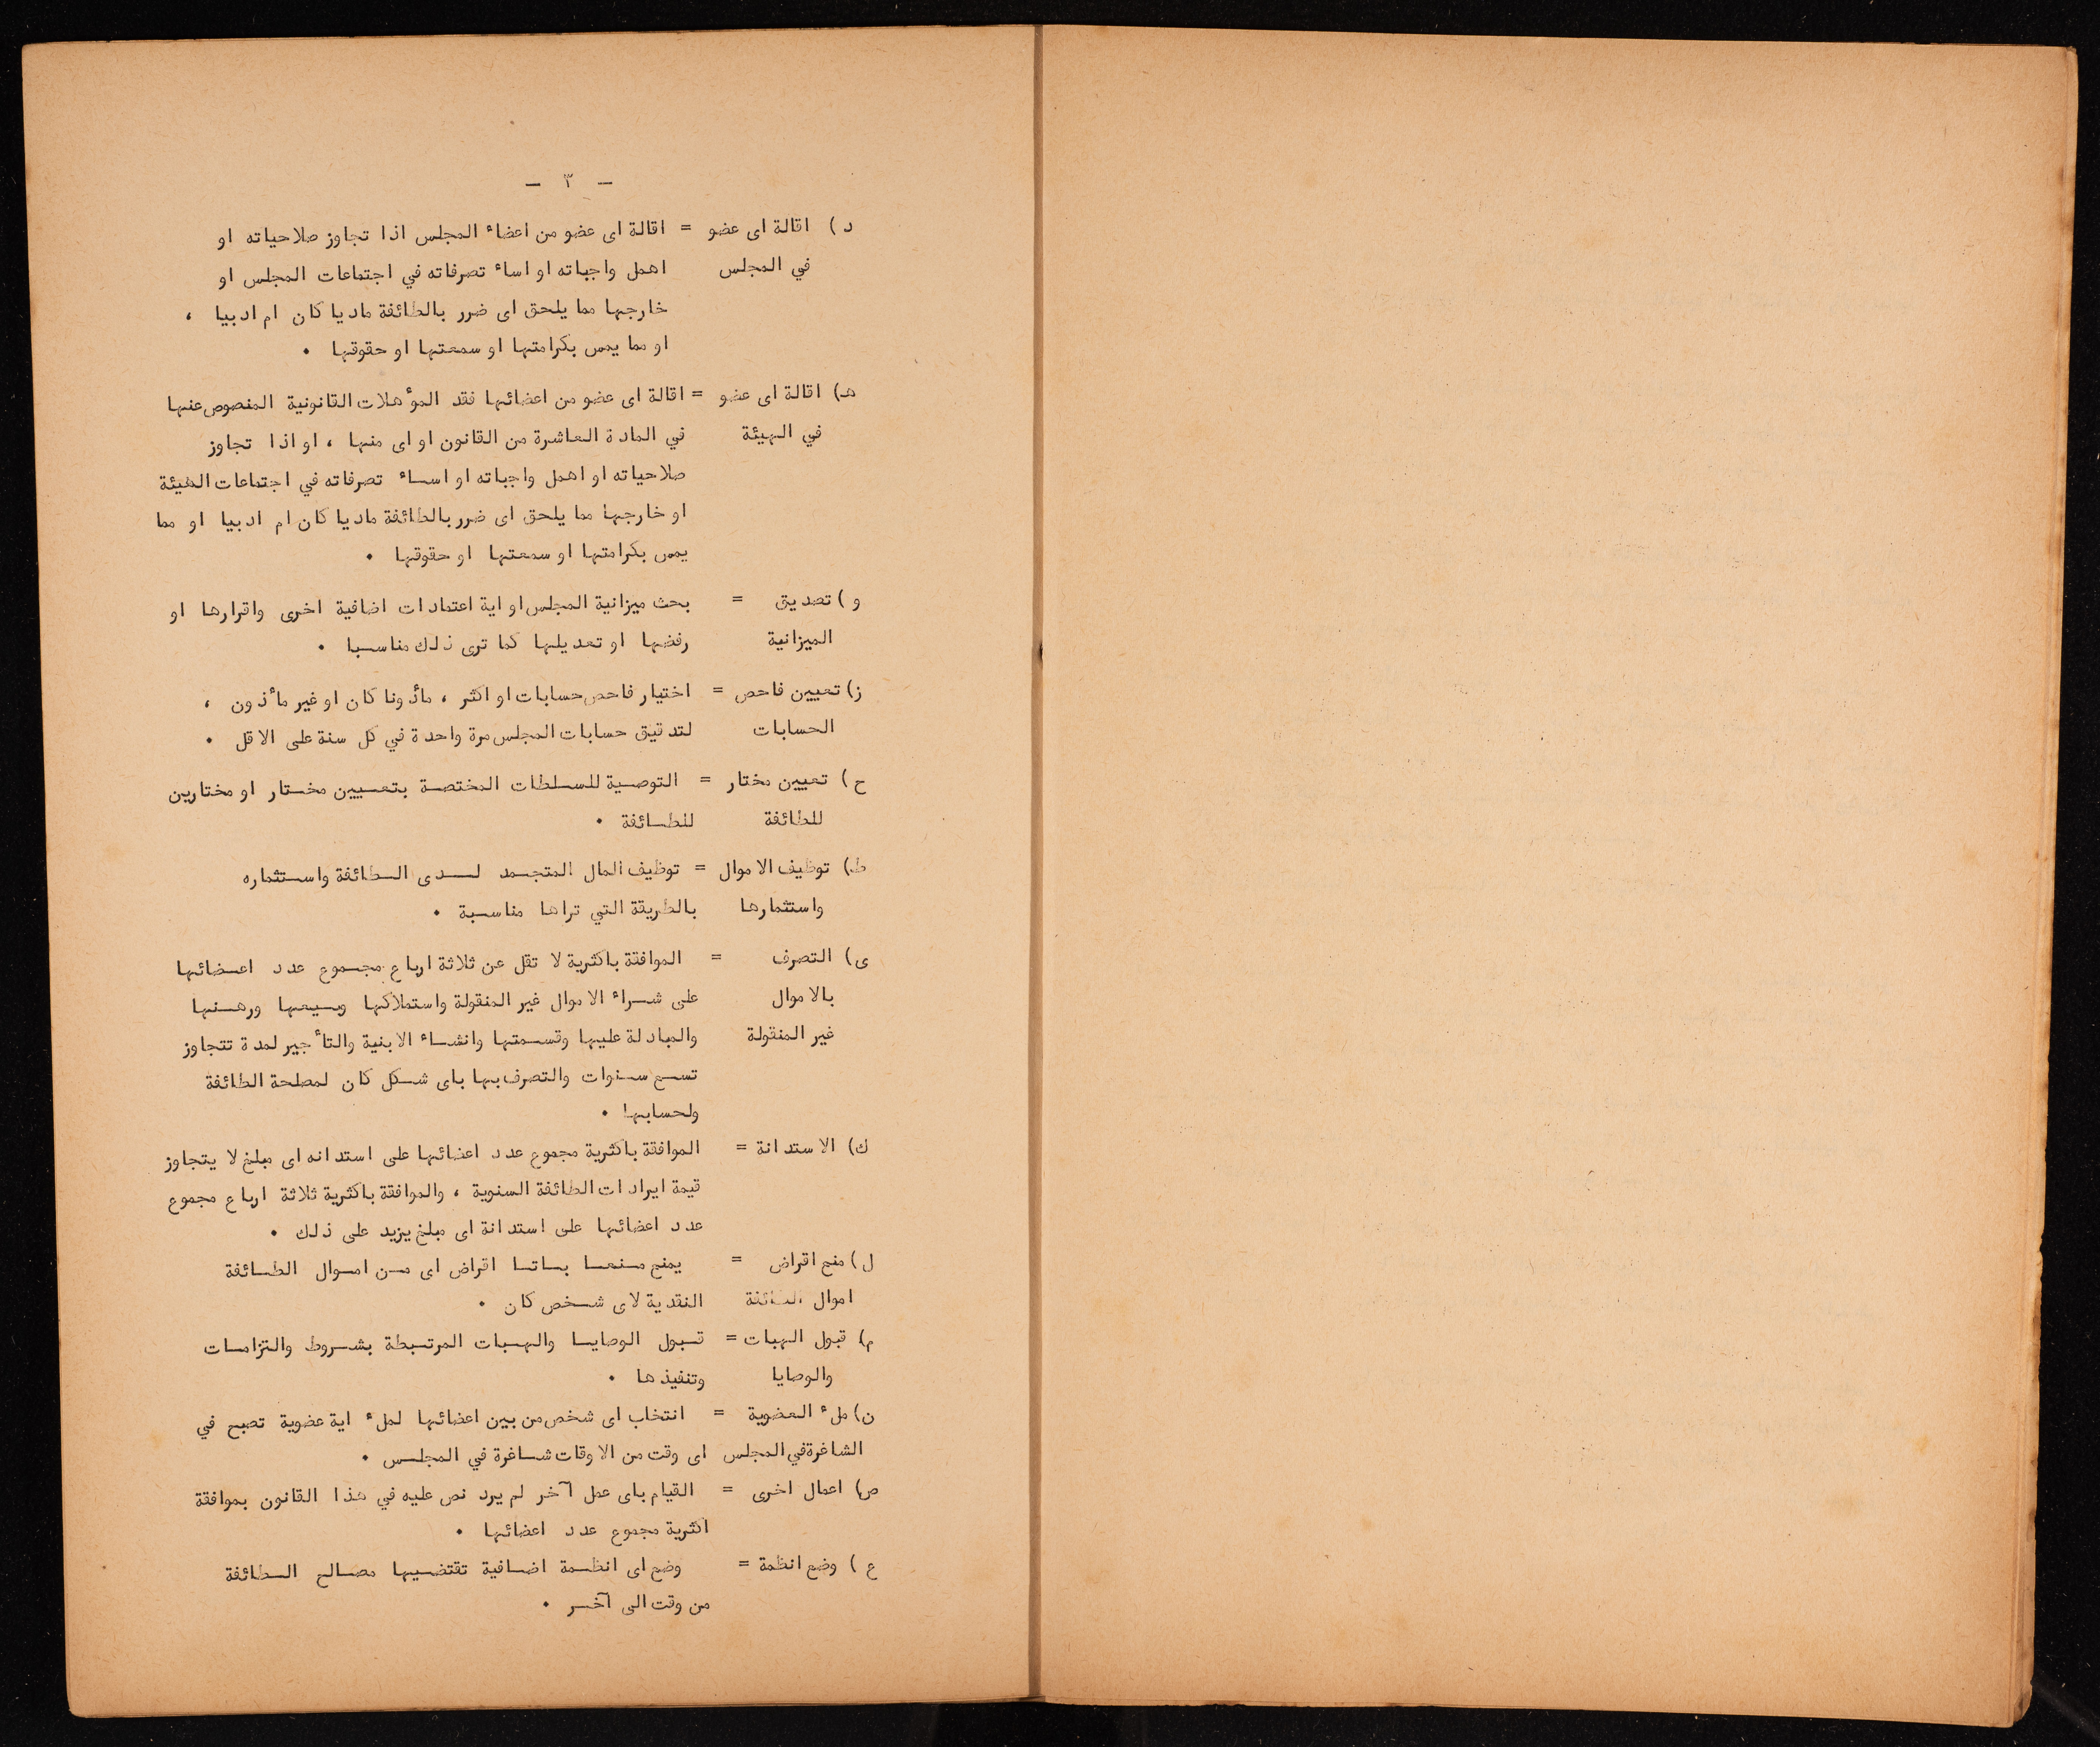 — ٣ —
د ) اقالة اى عضو = اقالة اى عضو من اعضاء المجلس اذا تجاوز صلاحياته او
في المجلس اهمل واجباته او اساء تصرفاته في اجتماعات المجلس او
خارجها مما يلحق اى ضرر بالطائفة ماديا كان ام ادبيا ،
او مما يمس بكرامتها او سمعتها او حقوقها .
هـ) اقالة اى عضو = اقالة اى عضو من اعضائها فقد المؤهلات القانونية المنصوص عنها
في الهيئة في المادة العاشرة من القانون او اى منها ، او اذا تجاوز
صلاحياته او اهمل واجباته او اساء تصرفاته في اجتماعات الهيئة
او خارجها مما يلحق اى ضرر بالطائفة ماديا كان ام ادبيا او مما
يمس بكرامتها او سمعتها او حقوقها .
و ) تصديق = بحث ميزانية المجلس او اية اعتمادات اضافية اخرى واقرارها او
الميزانية رفضها او تعديلها كما ترى ذلك مناسبا .
ز) تعيين فاحص = اختيار فاحص حسابات او اكثر ، مأذونا كان او غير مأذون ،
الحسابات لتدقيق حسابات المجلس مرة واحدة في كل سنة على الاقل .
ح ) تعيين مختار = التوصية للسلطات المختصة بتعيين مختار او مختارين
للطائفة للطائفة .
ط) توظيف الاموال = توظيف المال المتجمد لدى الطائفة واستثماره
واستثمارها بالطريقة التي تراها مناسبة .
ى ) التصرف = الموافقة باكثرية لا تقل عن ثلاثة ارباع مجموع عدد اعضائها
بالاموال على شراء الاموال غير المنقولة واستملاكها وبيعها ورهنها
غير المنقولة والمبادلة عليها وقسمتها وانشاء الابنية والتأجير لمدة تتجاوز
تسع سنوات والتصرف بها باى شكل كان لمصلحة الطائفة
ولحسابها .
ك) الاستدانة = الموافقة باكثرية مجموع عدد اعضائها على استدانه اى مبلغ لا يتجاوز
قيمة ايرادات الطائفة السنوية ، والموافقة باكثرية ثلاثة ارباع مجموع
عدد اعضائها على استدانة اى مبلغ يزيد على ذلك .
ل ) منع اقراض = يمنع منعا باتا اقراض اى من اموال الطائفة
اموال الطائفة النقدية لاى شخص كان .
م) قبول الهبات = قبول الوصايا والهبات المرتبطة بشروط والتزامات
والوصايا وتنفيذها .
ن) ملء العضوية = انتخاب اى شخص من بين اعضائها لملء اية عضوية تصبح في
الشاغرة في المجلس اى وقت من الاوقات شاغرة في المجلس .
ص) اعمال اخرى = القيام باى عمل آخر لم يرد نص عليه في هذا القانون بموافقة
اكثرية مجموع عدد اعضائها .
ع ) وضع انظمة = وضع اى انظمة اضافية تقتضيها مصالح الطائفة
من وقت الى آخر .